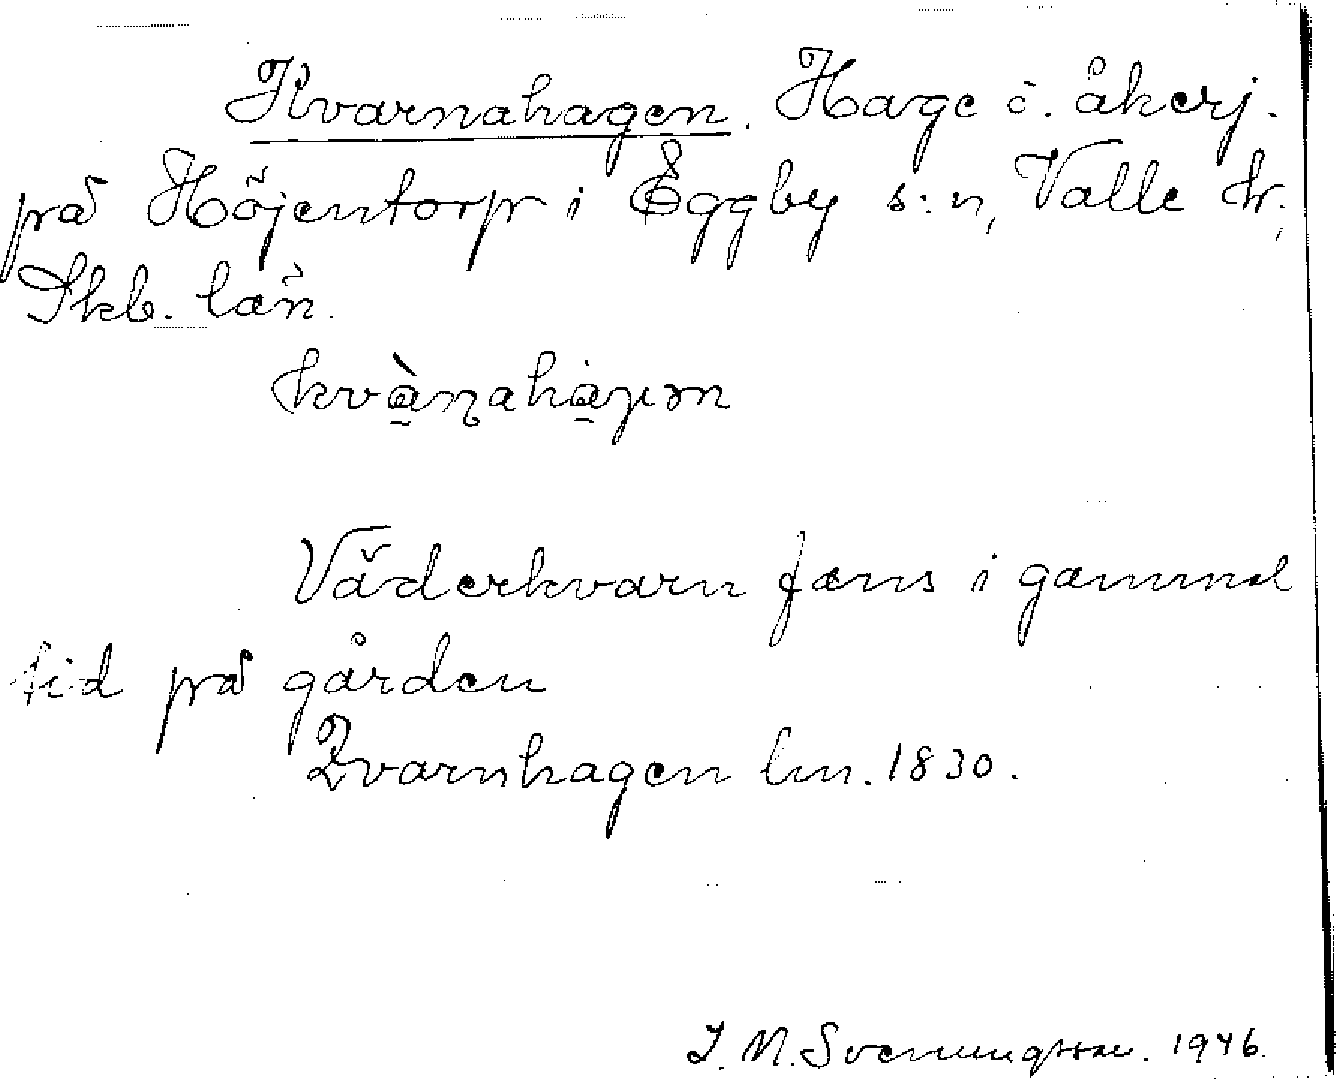 Kvarnahagen. Hage o. åkerj.
på Höjentorp i Eggby s:n, Valle hr.
Skb. län.
kvànahàgən
Väderkvarn fans i gammal
tid på gården
Qvarnhagen lm. 1830.
J. N. Svenungsson. 1946.